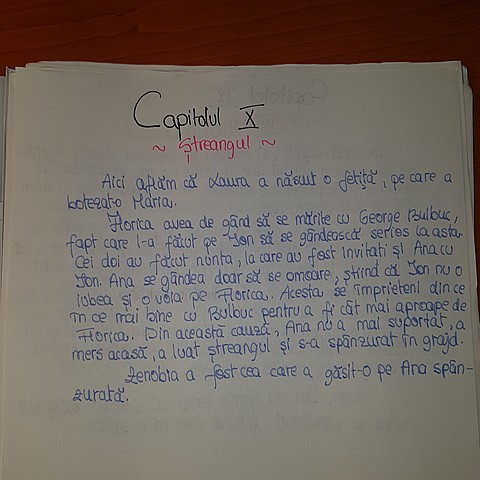 Capitolul X
~ Ștreangul ~
Aici aflăm că Laura a născut o fetiță, pe care a
botezat-o Maria.
Florica avea de gând să se mărite cu George Bulbuc,
fapt care l-a făcut pe Ion să se gândească serios la asta.
Cei doi au făcut nunta, la care au fost invitati și Ana cu
Ion. Ana se gândea doar să se omoare, știind că Ion nu o
iubea și o voia pe Florica. Acesta se împrieteni din ce
în ce mai bine cu Bulbuc pentru a fi cât mai aproape de
Florica. Din această cauză, Ana nu a mai suportat, a
mers acasă, a luat ștreangul și s-a spânzurat în grajd.
Zenobia a fost cea care a găsit-o pe Ana spân-
zurată.